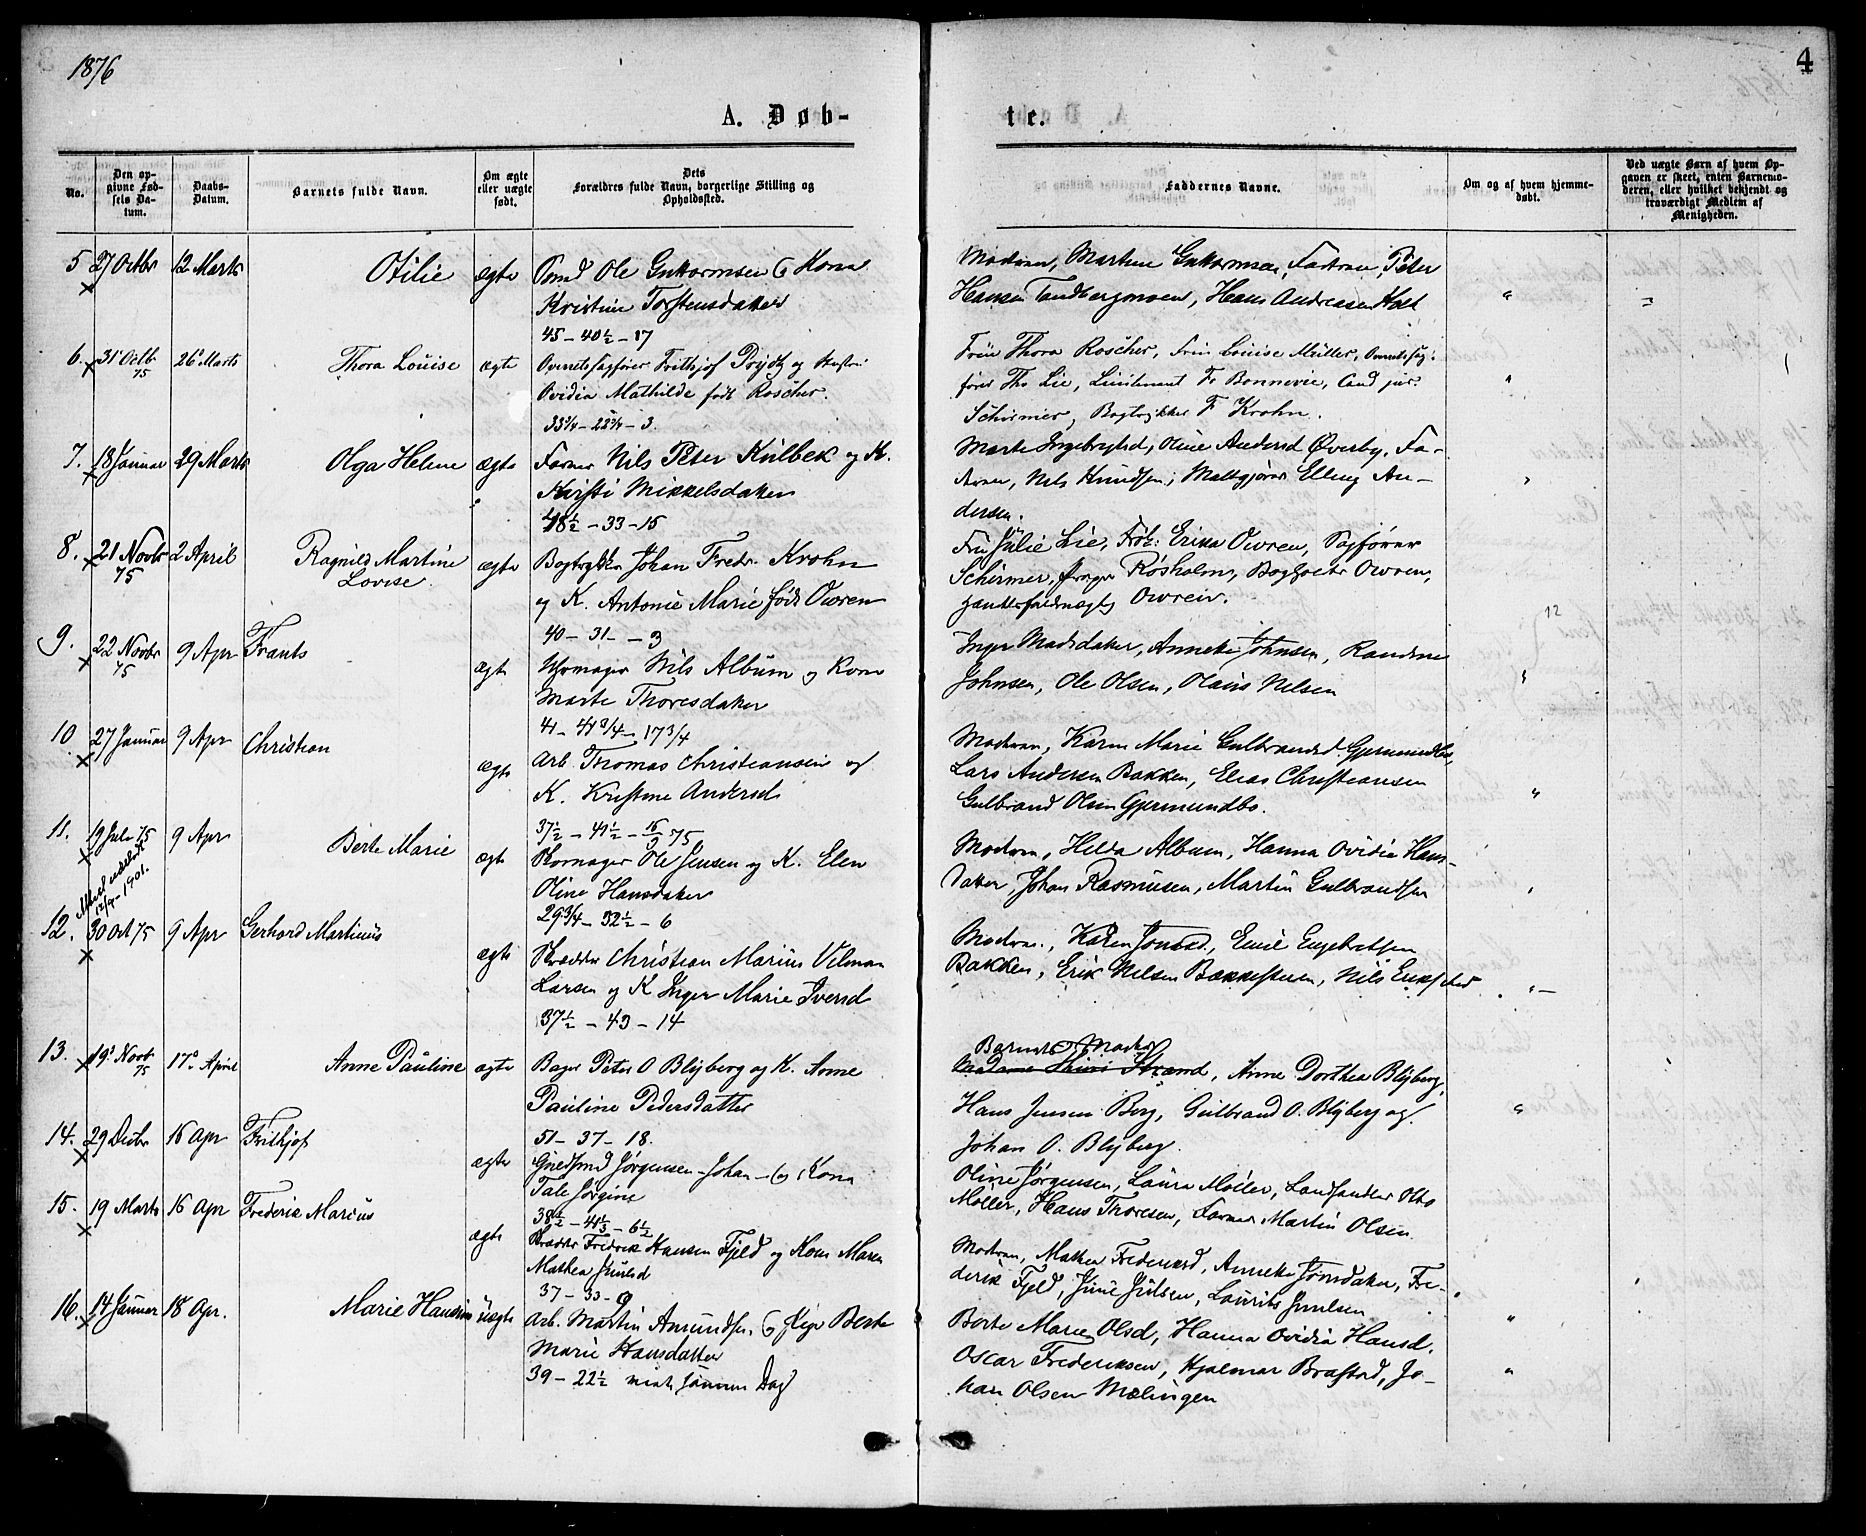 1876
4
A. Døb-
te.
No.
Den op-
givne Fød-
sels Da-
tum.
Daabs-
Datum.
Barnets fulde Navn.
Om ægte
eller uægte
født.
Dets
Forældres fulde Navn, borgerlige Stilling og
Opholdssted.
Faddernes Navne.
Om og af hvem hjemme-
døbt.
Ved uægte Børn af hvem Op-
gaven er skeet, enten Barnemo-
deren, eller hvilket bekjendt og
troværdigt Medlem af
Menigheden.
5 27 Octbr 12 Marts Otilie ægte Ole Guttormsen og Kona
Kristine Torstensdatter
45 - 40½ - 17
Modren, Martine Guttormsen, Fadren, Peter
Hansen Tandbergmoen, Hans Andreasen Holt
6. 31 Octb 75 26 Marts Thora Louise ægte Overretssagfører Frithjof Prydtz og Hustru
Ovidia Mathilde født Roscher.
33¼ - 22¾ - 3.
Frøn Thora Roscher, Frøn Louise Müller, Overretssag-
fører Th. Lie, Lieutenant Fr Bonnevie, Cand jur.
Schirmer, Bogtrykker F Krohn.
7. 18 Januar 29 Marts Olga Helene ægte Farver Nils Peter Kulbek og K.
Kristi Mikkelsdatter
48½ - 33 - 15
Marte Ingebrigtsd, Oline Andersd Øverby, Fa-
dren, Nils Knudsen, Maltgjører Elling An-
dersen.
8. 21 Novbr 75 2 April Ragnild Martine
Lovise. ægte Bogtrykker Johan Fredr. Krohn
og K. Antonie Marie født Owren
40 - 31 - 3
Fru Julie Lie, Frøk. Erika Owren, Sagfører
Schirmer, Røsholm, Bogholder Owren,
Owren.
12
9. 22 Novbr 75 9 Apr Frants ægte Uhrmager Nils Album og Kone
Marte Thoresdatter
41 - 41¾ - 17¾
Inger Madsdatter, Annette Johnsen, Randine
Johnsen, Ole Olsen, Olaus Nelsen
10 27 Januar 9 Apr Christian ægte Arb. Thomas Christiansen og
K. Kristine Andersd
37½ - 41½ - 15/9 75
Modren, Karen Marie Gulbrandsd Gjermundbo,
Lars Andersen Bakken, Elias Christiansen
Gulbrand Olsen Gjermundbo.
11. 19 Juli 75 9 Apr Berte Marie ægte Skomager Ole Jensen og K. Elen
Oline Hansdatter
29¾ - 32½ - 6
Attest udstedt
12/9 - 1901.
Modren, Helda Album, Hanna Ovidia Hans-
datter, Johan Rasmusen, Martin Gulbrandsen
12. 30 Oct 75 9 Apr Gerhard Martinus ægte Skrædder Christian Marius Velman
Larsen og K Inger Marie Iversd
37½ - 43 - 14
Modren, Karen Jonsd., Emil Engebretsen
Bakken, Erik Nelsen Bakkesteen, Nils
13. 19 Novb 75 17 April Anne Pauline ægte Bager Peter O Blyberg og K. Anne
Pauline Pedersdatter
51 - 37 - 18.
Barnets Moder
Strand, Anne Dorthea Blyberg,
Hans Jensen Berg, Gulbrand O. Blyberg og
Johan O. Blyberg.
14. 29 Decbr 16 Apr Frithjof ægte Jørgensen Johan - og Kona
Tale Jørgine
38½ - 41⅓ - 6½
Oline Jørgensen, Laura Møller, Landhandler Otto
Møller, Hans Thoresen, Farver Martin Olsen.
15. 19 Marts 16 Apr Frederik Marius ægte Skrædder Fredrik Hansen Fjeld og Kone Maren
Mathea Juulsd
37 - 33 - 9
Modren, Mathea Frederiksd, Annette Jonsdatter, Fre-
derik Fjeld, June Julsen, Laurits Juulsen
16. 14 Januar 18 Apr. Marie Hansine uægte Arb. Martin Amundsen og Pige Berte
Marie Hansdatter
39 - 22½ samme Dag
Berte Marie Olsd, Hanna Ovidia Hansd.
Oscar Frederiksen, Hjalmar Brastad, Jo-
han Olsen Mælingen